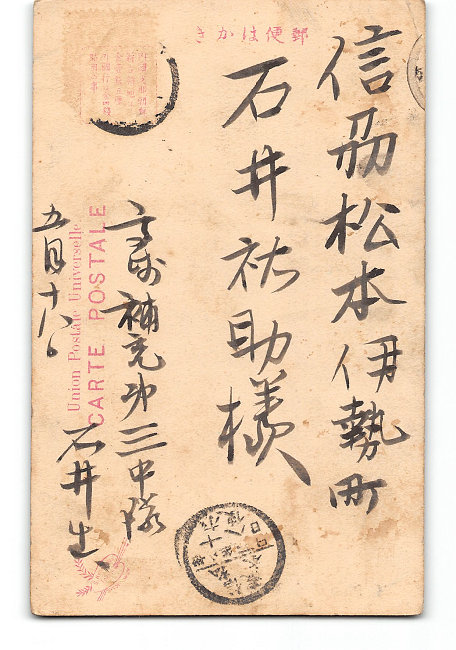 郵便はかき
信州松本伊勢町
石井祐助様
高崎補充第三中隊
石井生
五月十八日
Union Postale Universelle
CARTE POSTALE